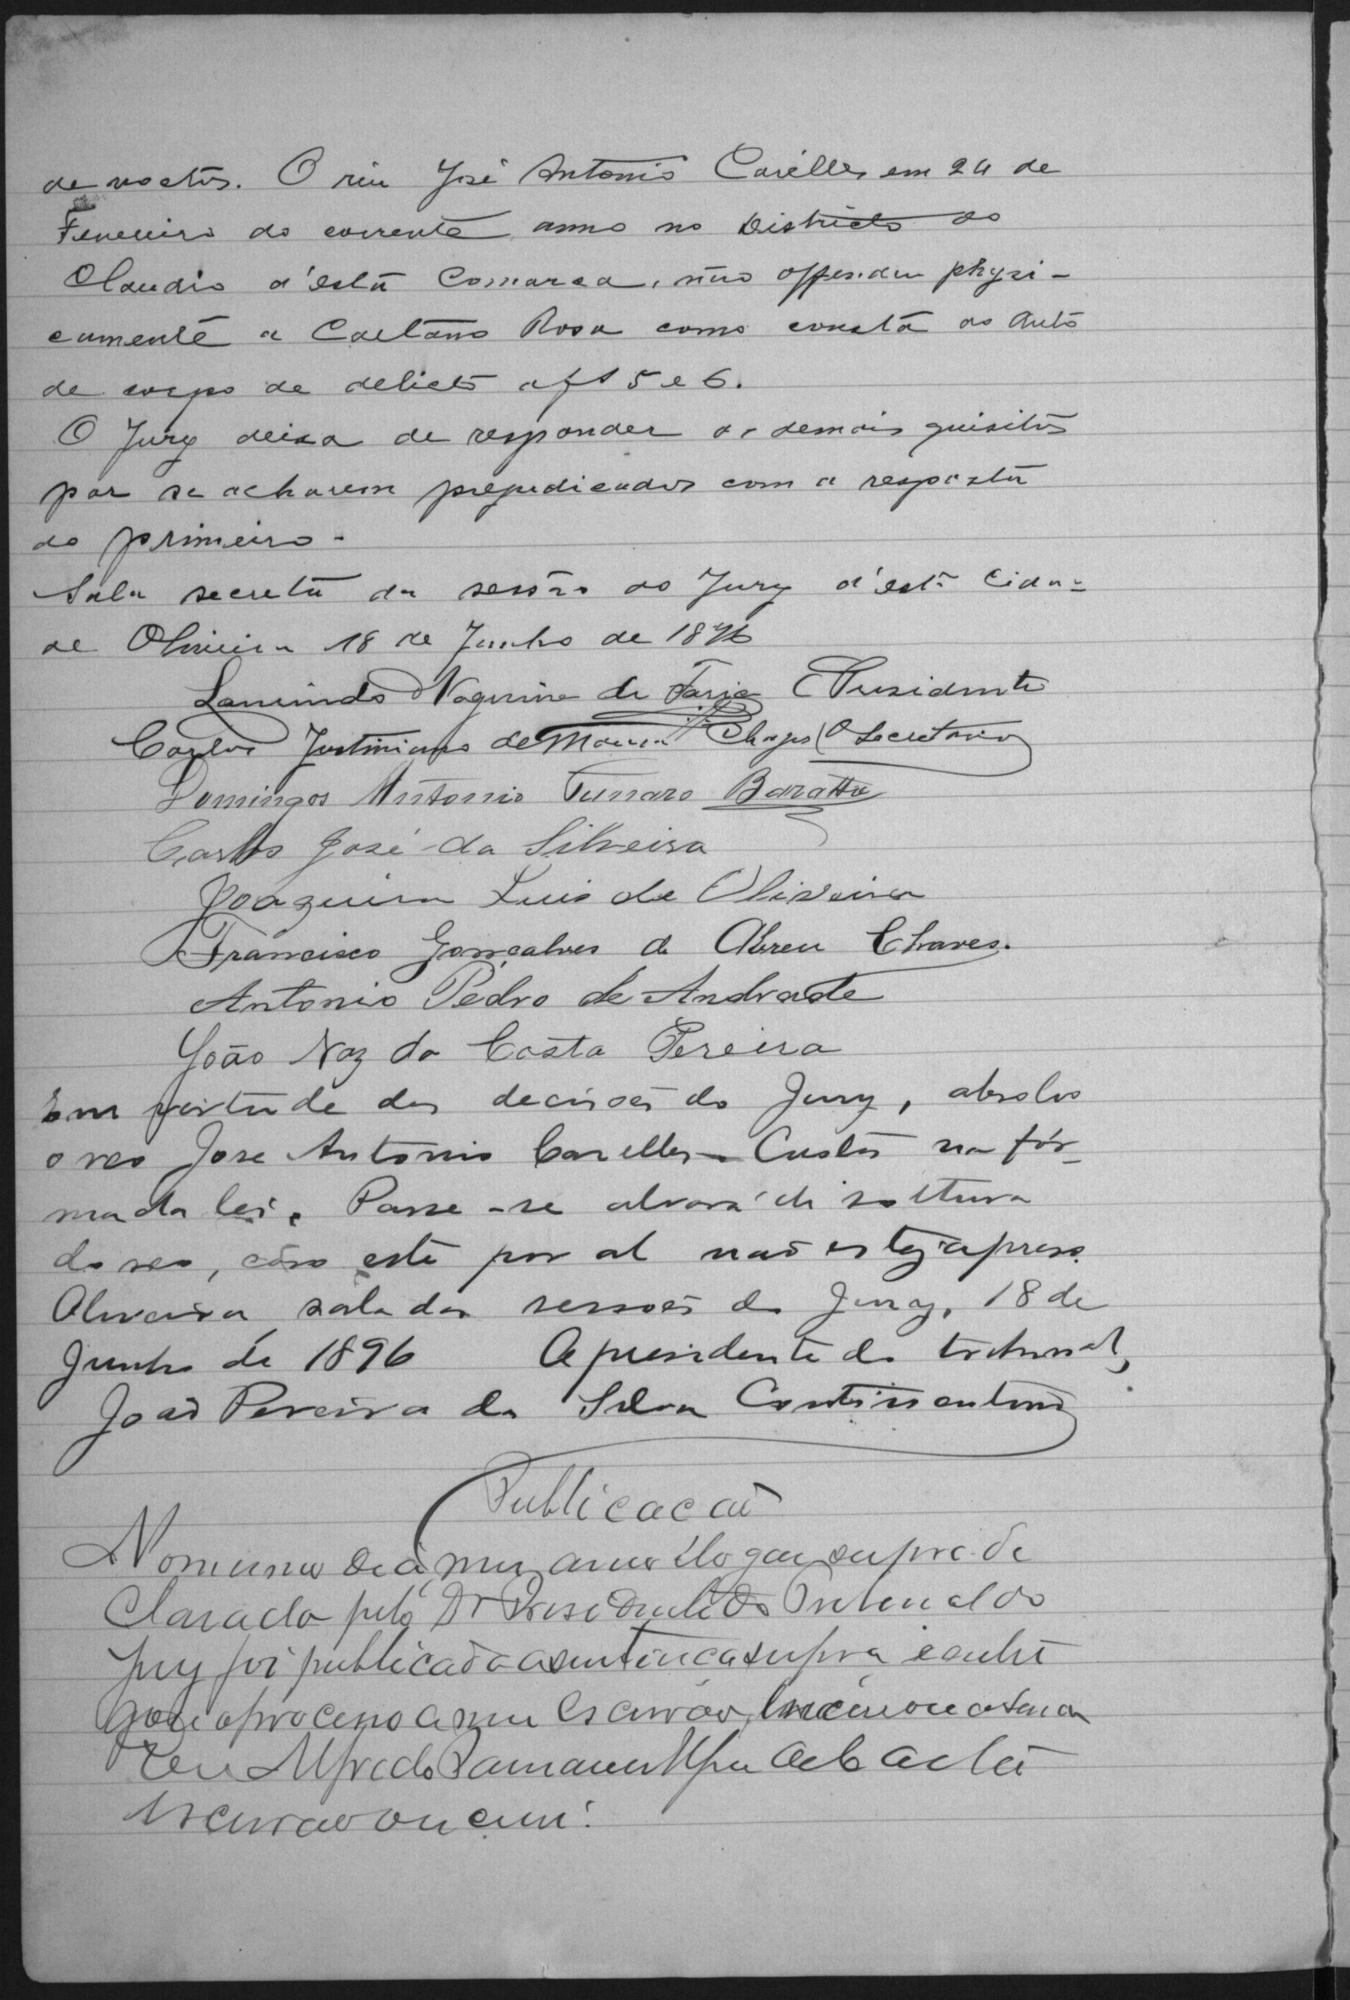 de votos. O réu José Antonio Carélles em 24 de
Fevereiro do corrente anno no Districto do
Claudio d'esta Comarca, não offendeu physi-
camente a Caetano Rosa como consta do auto
de corpo de delicto a fs 5 e 6.
O Jury deixa de responder os demais quisitos
por se acharem prejudicados com a resposta
do primeiro.
Sala secreta da sessão do Jury d'esta Cida-
de Oliveira 18 de Junho de 1896
Nogueira de Faria Presidente
Carlos Justiniano de Chagas Secretario
Domingos Antonio Baratta
Carlos José da Silveira
Joaquim Luis de Oliveira
Francisco Gonçalves de Abreu Chaves.
Antonio Pedro de Andrade
João Vaz da Costa Pereira
Em virtude das decisões do Jury, absolvo
o reo Jose Antonio Carelles. Custas na fór-
ma da lei. Passe-se alvará de soltura
do reo, caso este por al não esteja preso.
Oliveira, sala das sessões do Jury, 18 de
Junho de 1896 O presidente do tribunal,
João Pereira da Silva Continentino
Publicacão
No mesmo dia, mez, anno e logar supra de
clarado pelo Dr Presidente do Tribunal do
Jury foi publicada a sentença supra e entre
gou o processo a meu escrivão,
Eu Alfredo
escrivão